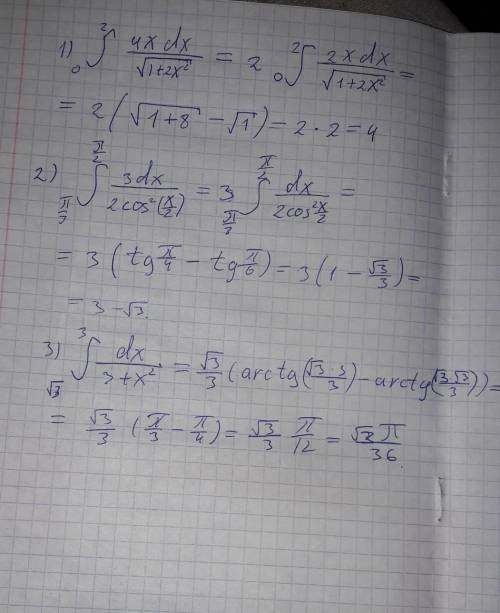 1) ₀∫² 4x dx / √(1+2x²) = 2 ₀∫² 2x dx / √(1+2x²) =
= 2 (√(1+8) − √1) = 2 · 2 = 4
2) ∫_{π/3}^{π/2} 3dx / 2cos²(x/2) = 3 ∫_{π/3}^{π/2} dx / 2cos² x/2 =
= 3 (tg π/4 − tg π/6) = 3 (1 − √3/3) =
= 3 − √3.
3) ∫_{√3}^{3} dx / 3+x² = √3/3 (arctg(√3·3/3) − arctg(√3·√3/3)) =
= √3/3 (π/3 − π/4) = √3/3 π/12 = √3 π/36.